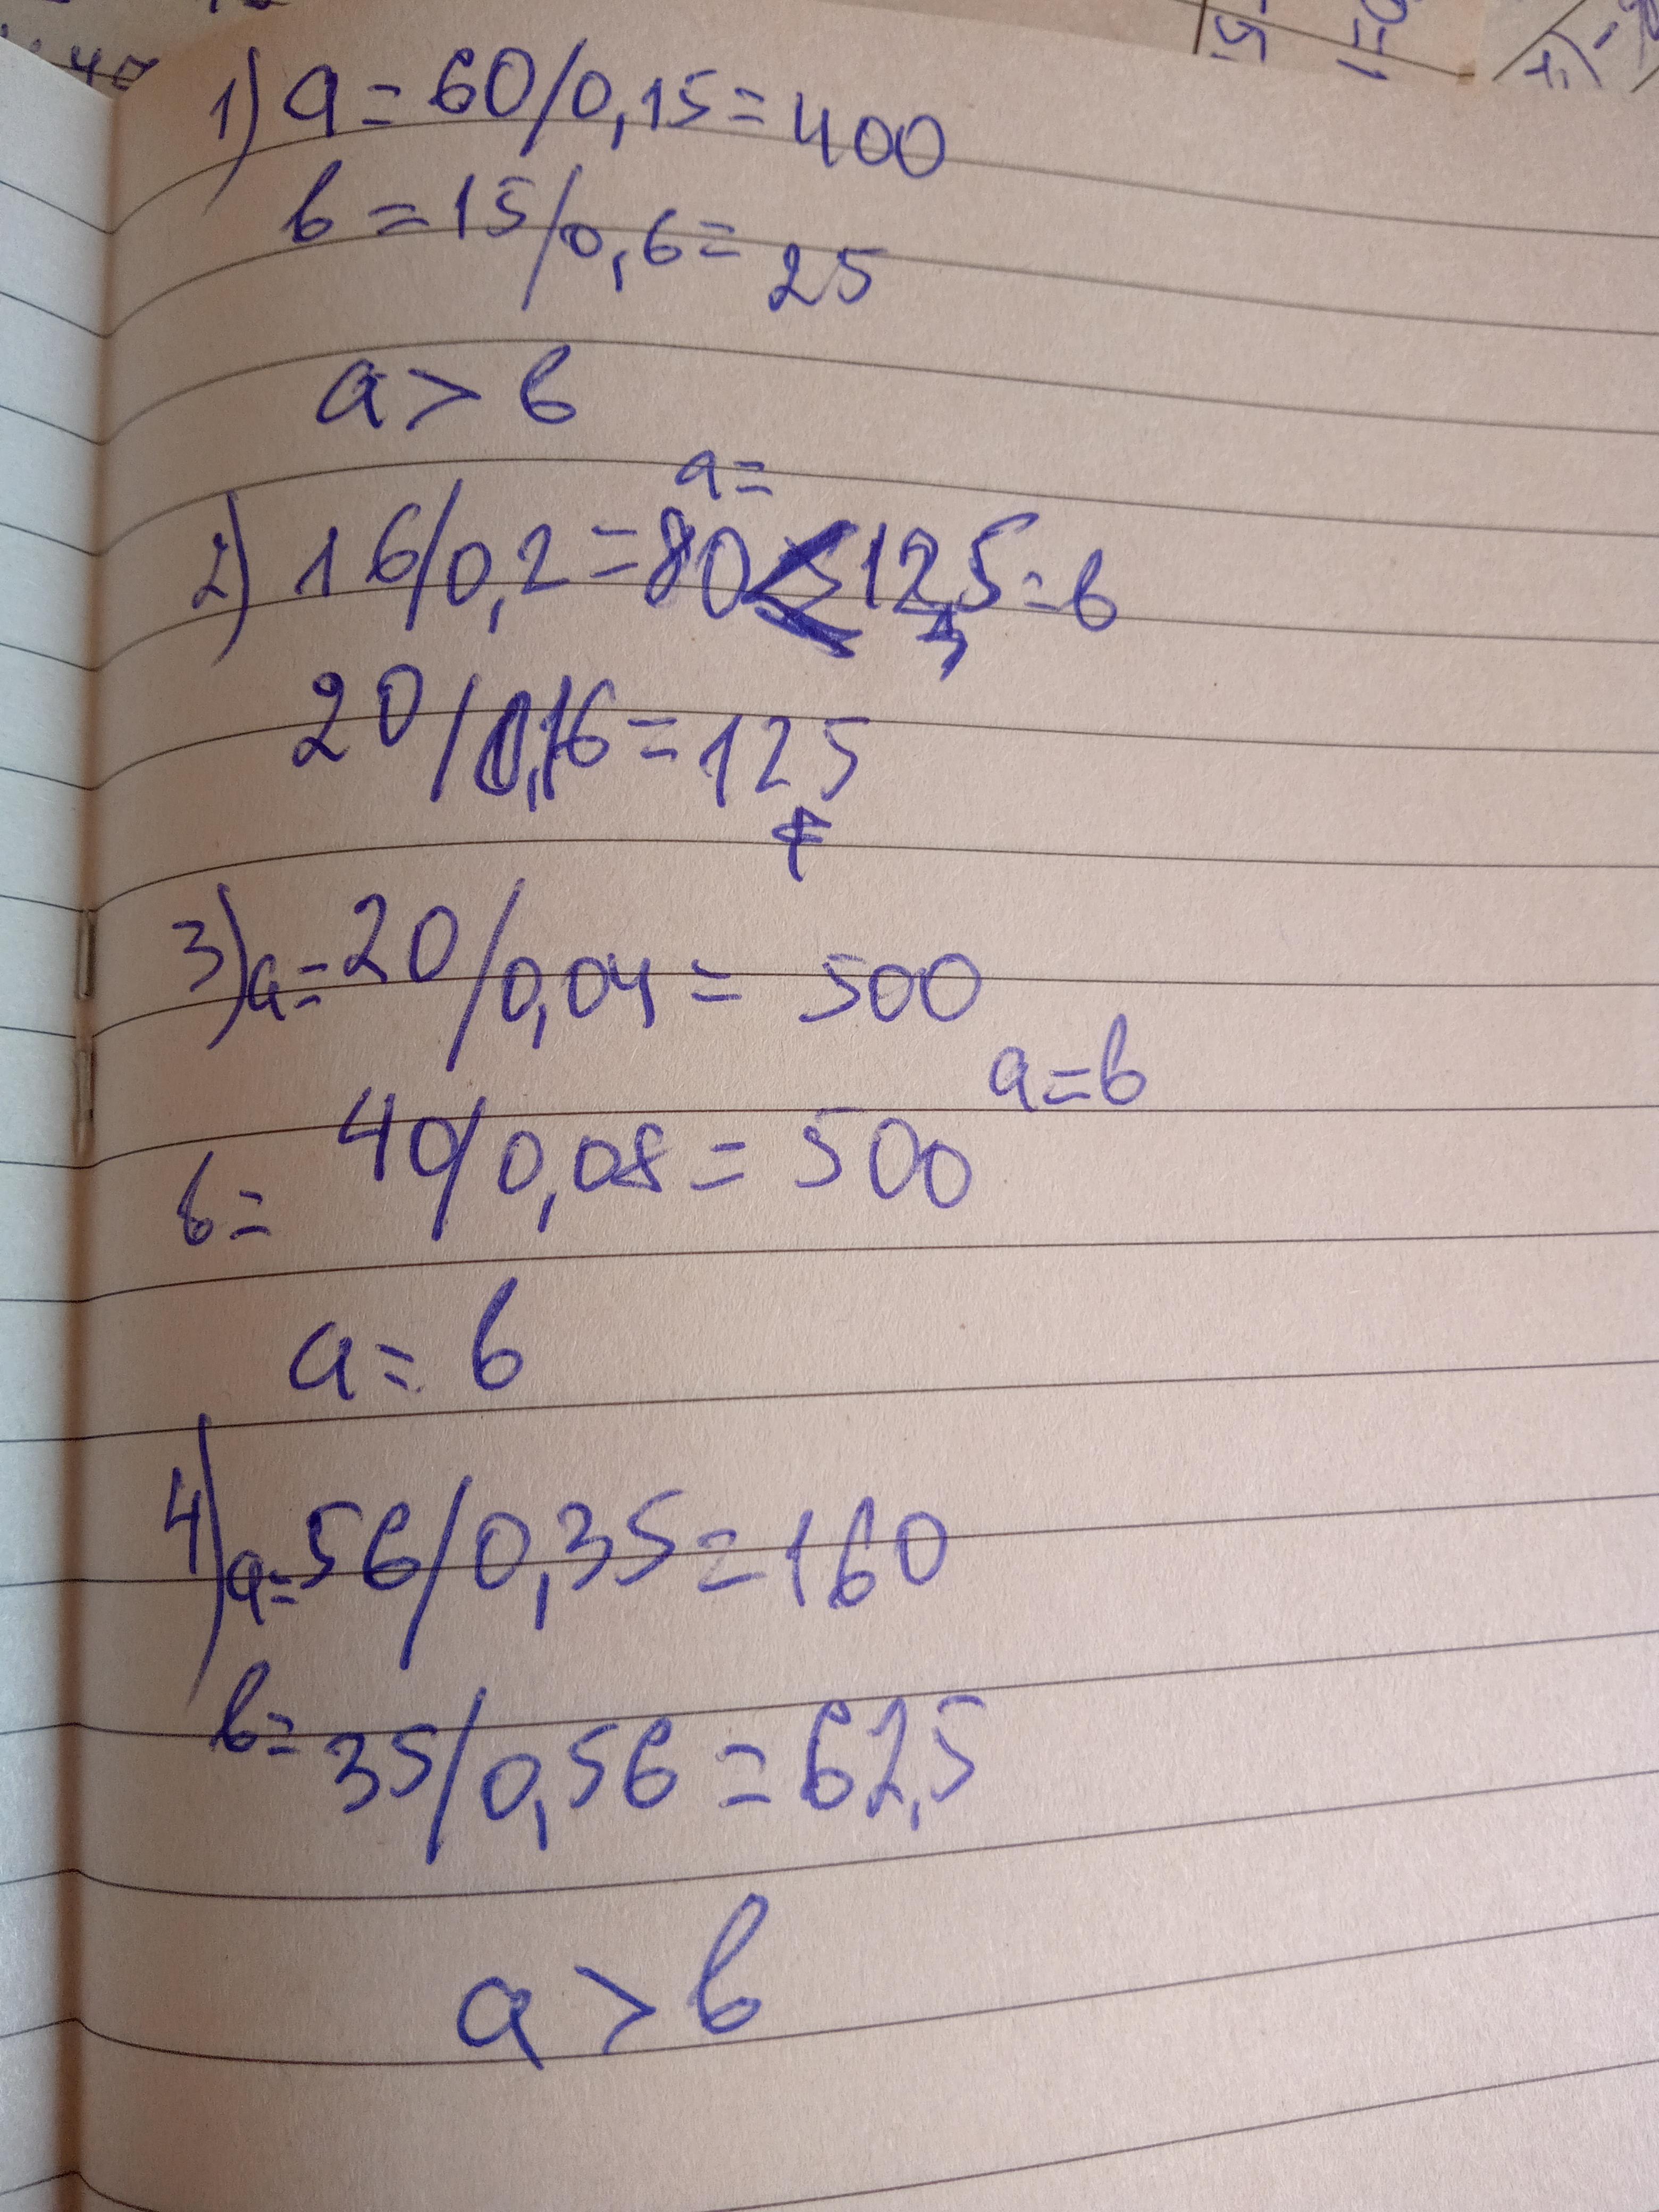 1) a = 60/0,15 = 400
b = 15/0,6 = 25
a > b
a =
2) 16/0,2 = 80 < 125 = b
20/0,16 = 125
3) a = 20/0,04 = 500
a = b
b = 40/0,08 = 500
a = b
4) a = 56/0,35 = 160
b = 35/0,56 = 62,5
a > b